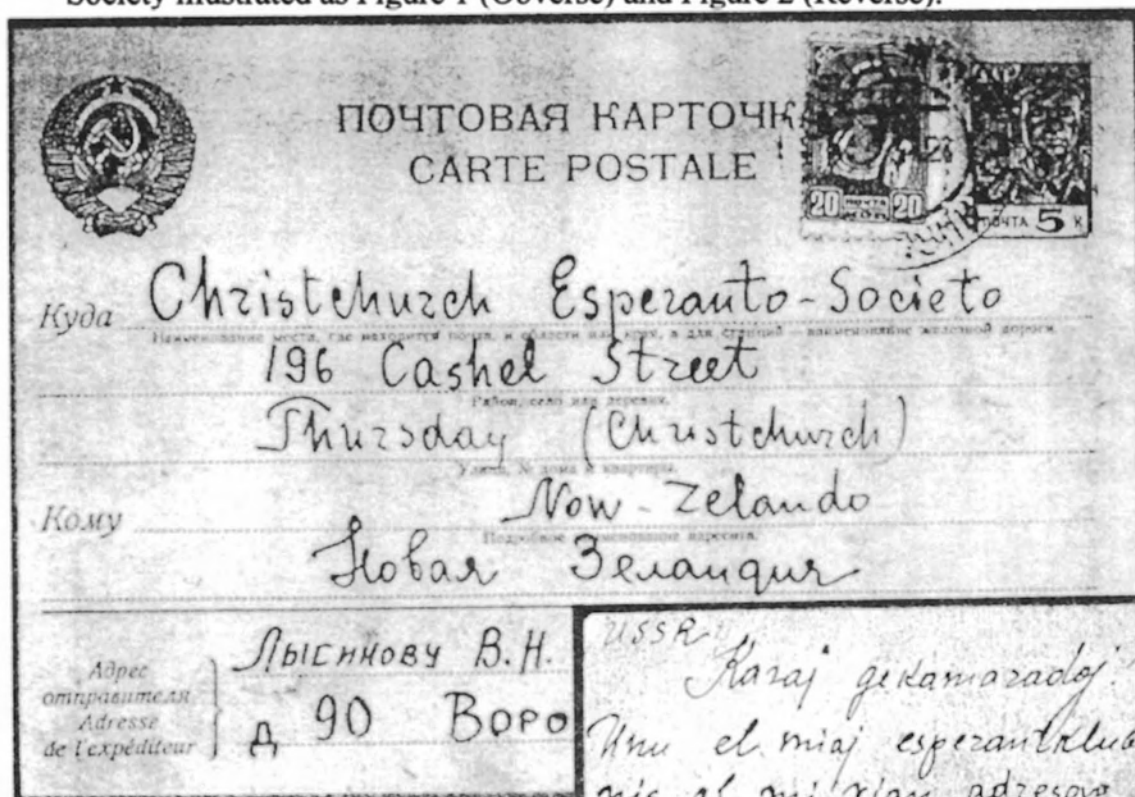 Society illustrated as Figure 1 (Obverse) and Figure 2 (Reverse).
ПОЧТОВАЯ КАРТОЧКА
CARTE POSTALE
20 ПОЧТА 20
ПОЧТА 5 К
Куда Christchurch Esperanto-Societo
Наименование места, где находится почта, и области или края, а для станций – наименование железной дороги
196 Cashel Street
Район, село или деревня.
Thursday (Christchurch)
Улица, № дома и квартиры.
Кому Now-Zelando
Подробное наименование адресата.
Новая Зеландия
Адрес
отправителя
Adresse
de l'expéditeur
Лысинову В.Н.
д 90 Воро
USSR
Karaj gekamaradoj!
Unu el miaj esperantklub
nis al mi vian adreson